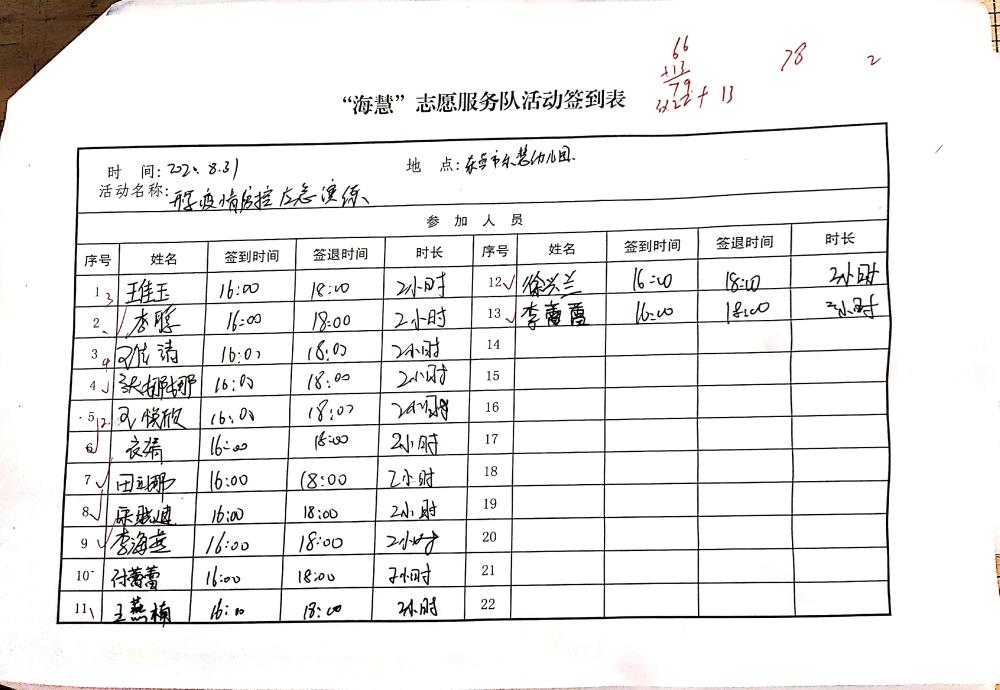 66
+13
79
78
2
×22+13
“海慧”志愿服务队活动签到表
时 间: 2020.8.31 地 点:东营市乐慧幼儿园
活动名称: 疫情防控应急演练
参 加 人 员
序号 姓名 签到时间 签退时间 时长 序号 姓名 签到时间 签退时间 时长
1 3 王佳玉 16:00 18:00 2小时 12 徐兴兰 16:00 18:00 2小时
2 李 16:00 18:00 2小时 13 李蕾蕾 16:00 18:00 2小时
3 9 16:00 18:00 2小时 14
4 张娜娜 16:00 18:00 2小时 15
5 12 悦欣 16:00 18:00 2小时 16
6 衣娟 16:00 18:00 2小时 17
7 田立娜 16:00 18:00 2小时 18
8 16:00 18:00 2小时 19
9 李海燕 16:00 18:00 2小时 20
10 付蕾蕾 16:00 18:00 2小时 21
11 王燕楠 16:00 18:00 2小时 22